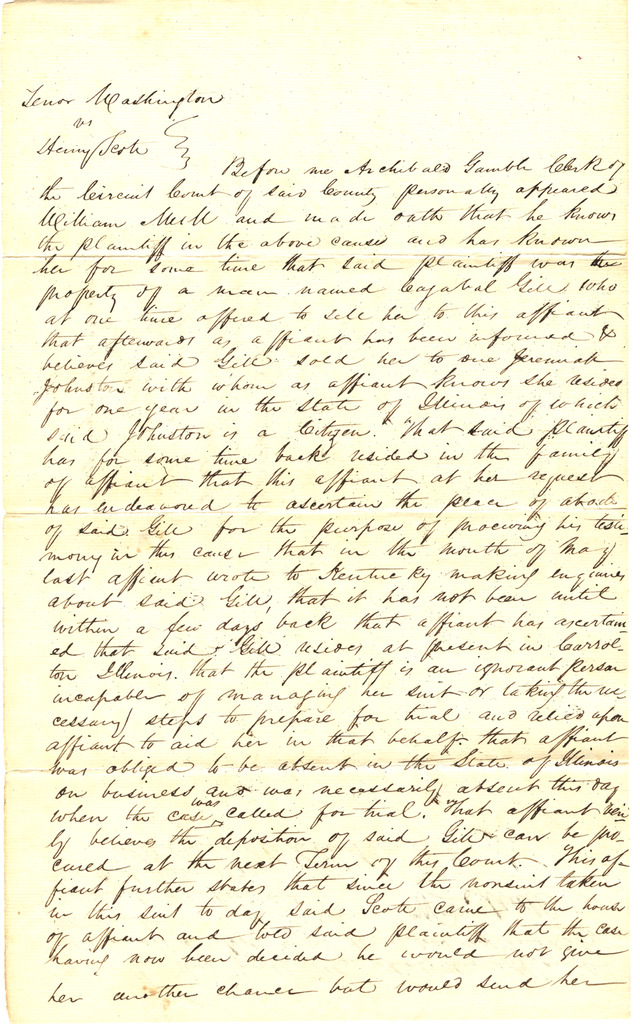 Tenor Washington
vs
Henry Scott
Before me Archibald Gamble Clerk of
the Circuit Court of said County personally appeared
William Mill and made oath that he knows
the plaintiff in the above cause and has known
her for some time that said plaintiff was the
property of a man named Gill who
at one time offered to sell her to this affiant
that afterwards as affiant has been informed &
believes said Gill sold her to one Jeremiah
Johnston with whom as affiant knows she resided
for one year in the State of Illinois of which
said Johnston is a Citizen. That said plaintiff
has for some time back resided in the family
of affiant that this affiant at her request
has endeavored to ascertain the place of abode
of said Gill for the purpose of procuring his testi-
mony in this cause that in the month of May
last affiant wrote to Kentucky making enquiries
about said Gill, that it has not been until
within a few days back that affiant has ascertain-
ed that said Gill resides at present in Carrol-
ton Illinois. that the plaintiff is an ignorant person
incapable of managing her suit or taking the ne-
cessary steps to prepare for trial and relied upon
affiant to aid her in that behalf. that affiant
was obliged to be absent in the State of Illinois
on business and was necessarily absent this day
when the case was called for trial. That affiant veri-
ly believes the deposition of said Gill can be pro-
cured at the next Term of this Court. This af-
fiant further states that since the nonsuit taken
in this suit to day said Scott came to the house
of affiant and told said plaintiff that the case
having now been decided he would not give
her another chance but would send her